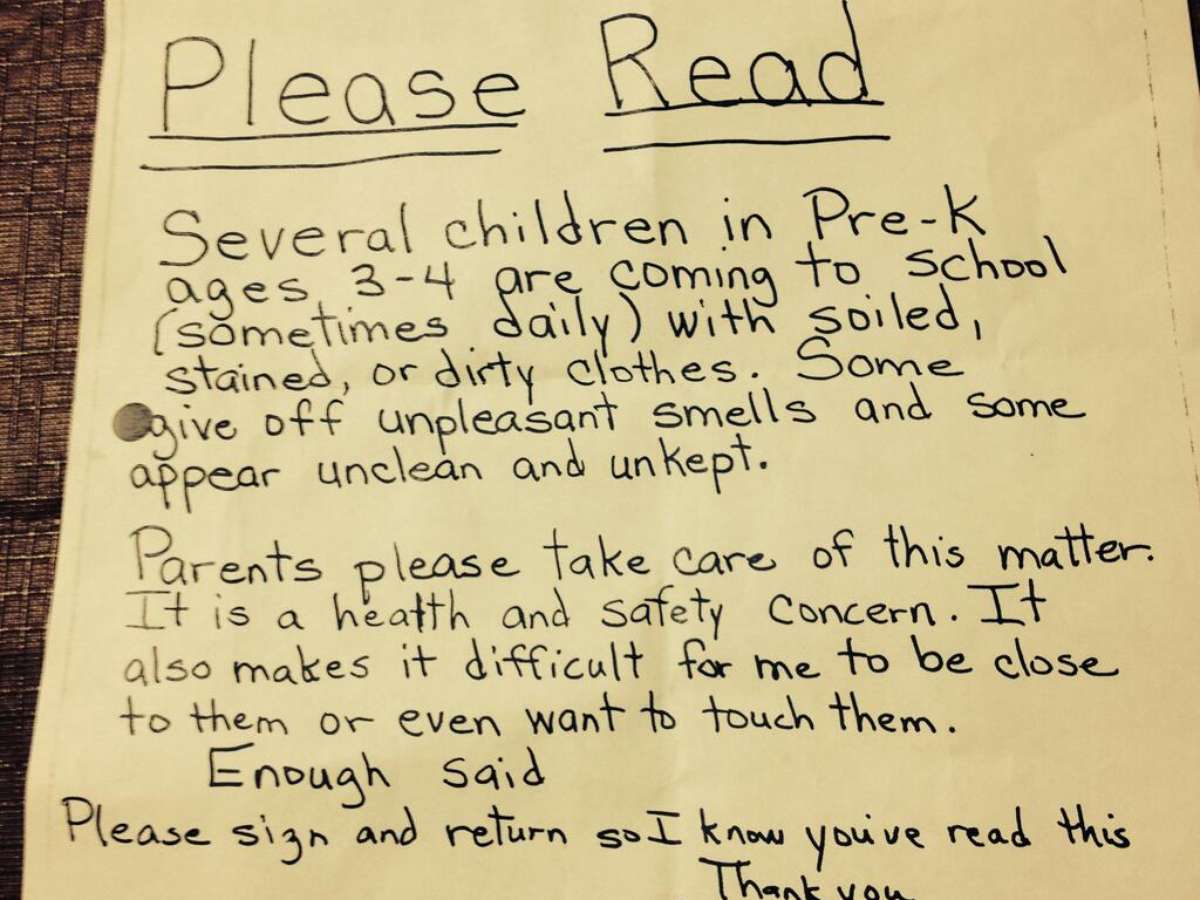 Please Read
Several children in Pre-K
ages 3-4 are coming to school
(sometimes daily) with soiled,
stained, or dirty clothes. Some
give off unpleasant smells and some
appear unclean and unkept.
Parents please take care of this matter.
It is a health and safety concern. It
also makes it difficult for me to be close
to them or even want to touch them.
Enough said
Please sign and return so I know you've read this
Thank you